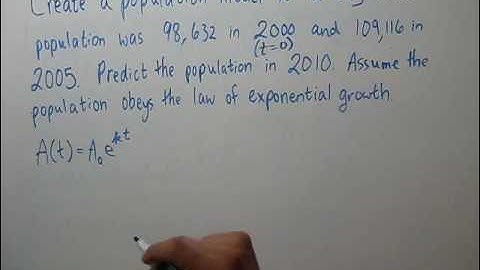 Create a population model
population was 98,632 in 2000 and 109,116 in
(t=0)
2005. Predict the population in 2010. Assume the
population obeys the law of exponential growth.
A(t) = A₀e^kt